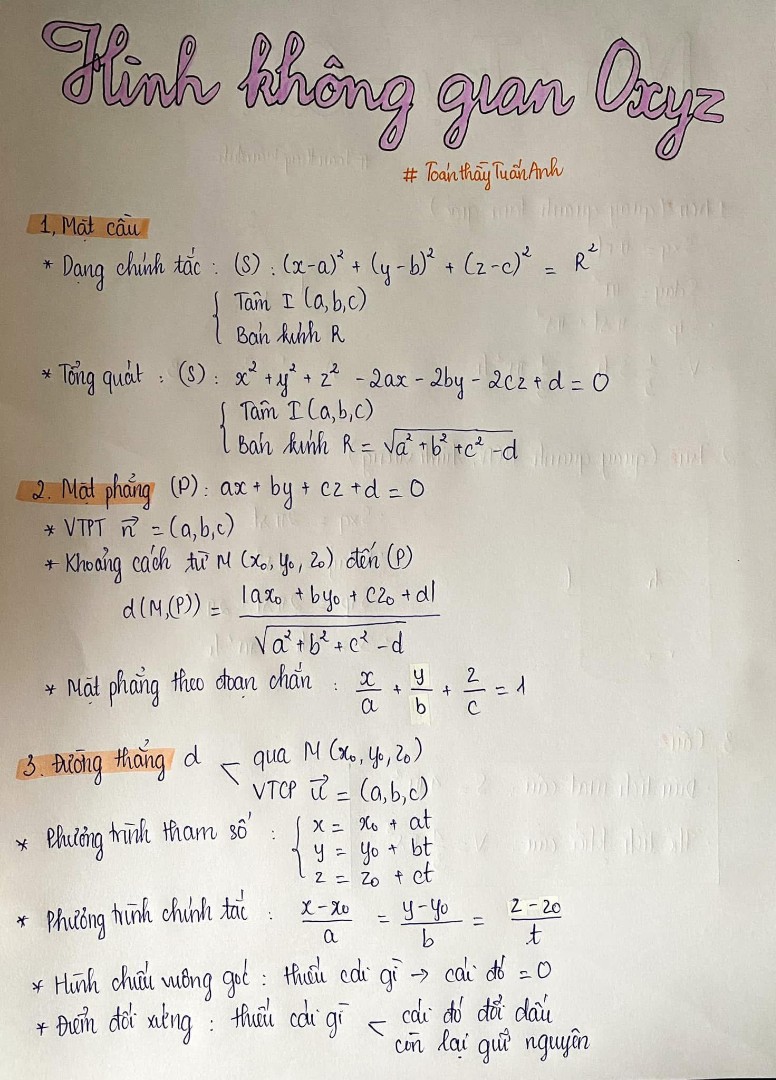 Hình không gian Oxyz
# ToánthầyTuấnAnh
1, Mặt cầu
* Dạng chính tắc : (S) : (x-a)² + (y-b)² + (z-c)² = R²
{ Tâm I (a,b,c)
Bán kính R
* Tổng quát : (S) : x² + y² + z² - 2ax - 2by - 2cz + d = 0
{ Tâm I (a,b,c)
Bán kính R = √(a² + b² + c² - d)
2. Mặt phẳng (P) : ax + by + cz + d = 0
* VTPT n⃗ = (a,b,c)
* Khoảng cách từ M (x₀, y₀, z₀) đến (P)
d(M,(P)) = |ax₀ + by₀ + cz₀ + d| / √(a² + b² + c² - d)
* Mặt phẳng theo đoạn chắn : x/a + y/b + z/c = 1
3. Đường thẳng d < qua M (x₀, y₀, z₀)
VTCP u⃗ = (a,b,c)
* Phương trình tham số : { x = x₀ + at
y = y₀ + bt
z = z₀ + ct
* Phương trình chính tắc : (x-x₀)/a = (y-y₀)/b = (z-z₀)/t
* Hình chiếu vuông góc : thiếu cái gì → cái đó = 0
* Điểm đối xứng : thiếu cái gì < cái đó đổi dấu
còn lại giữ nguyên